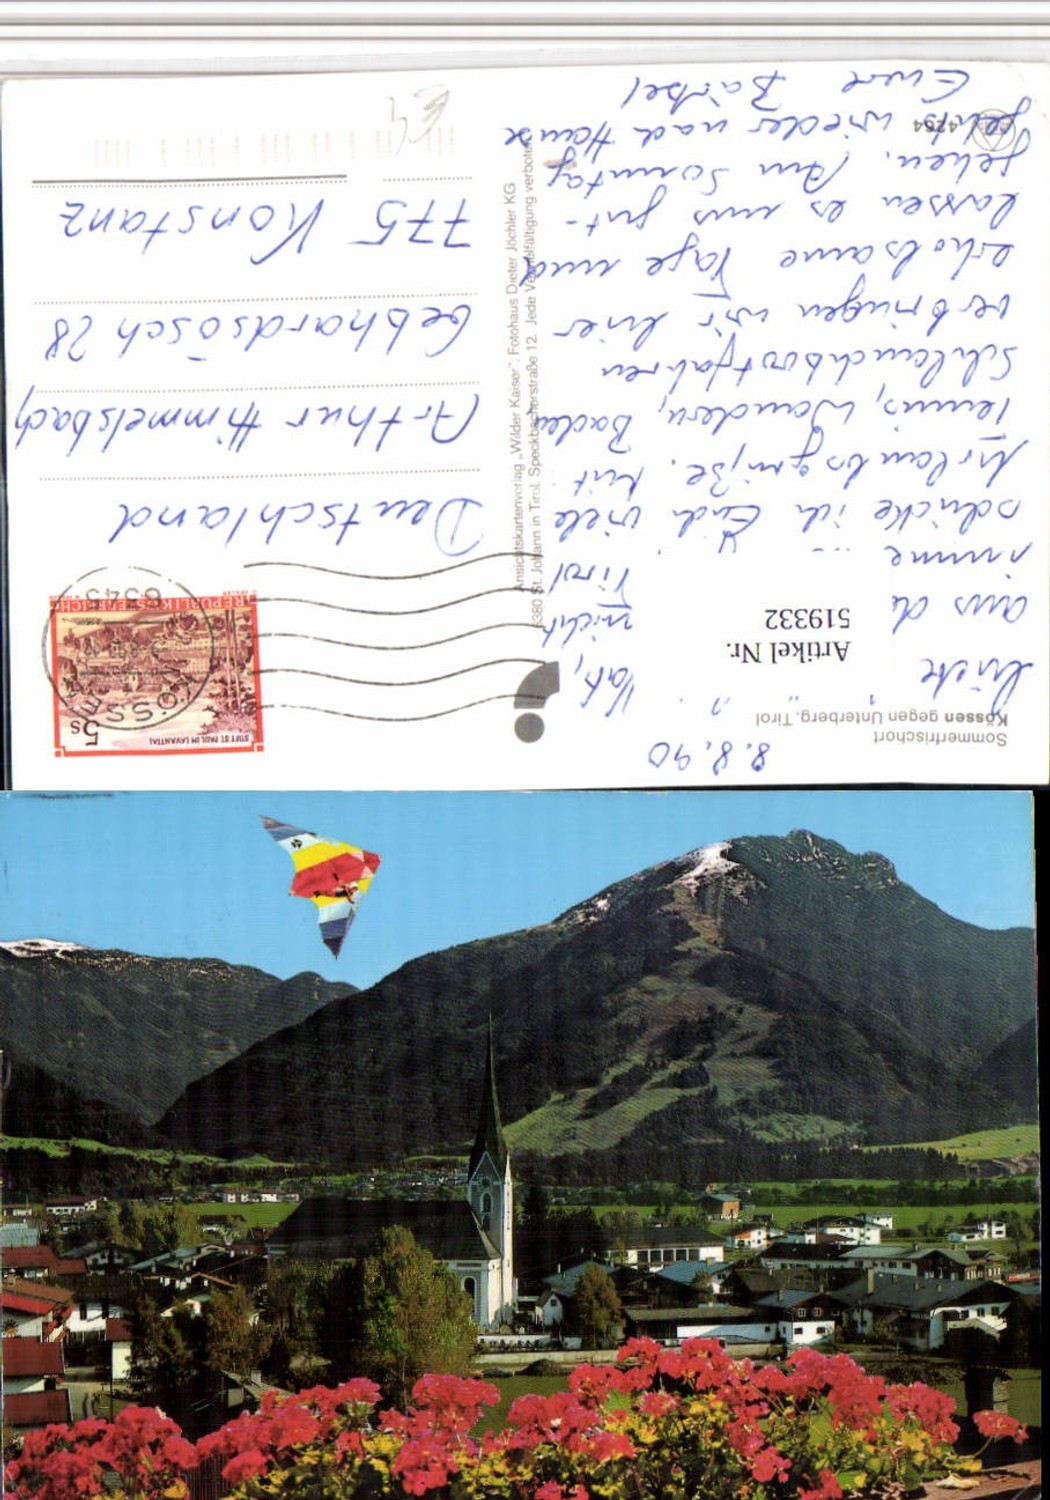 Sommerfrischort
Kössen gegen Unterberg, Tirol
8.8.90
Artikel Nr.
519332
aus
Tirol
nicht
schicke ich Euch viele
Urlaubsgrüße. Mit
Tennis, Wandern, Baden
Schlauchbootfahren
verbringen wir hier
erholsame Tage und
lassen es uns gut-
gehen. Am Sonntag
geht's wieder nach Hause
Eure Bärbel
4764
Ansichtskartenverlag „Wilder Kaiser", Fotohaus Dieter Jöchler KG
6380 St. Johann in Tirol, Speckbacherstraße 12. Jede Vervielfältigung verboten
STIFT ST. PAUL IM LAVANTTAL
5s
REPUBLIK ÖSTERREICH
6345
KÖSSEN
Deutschland
Arthur Himmelsbach
Gebhardsösch 28
775 Konstanz